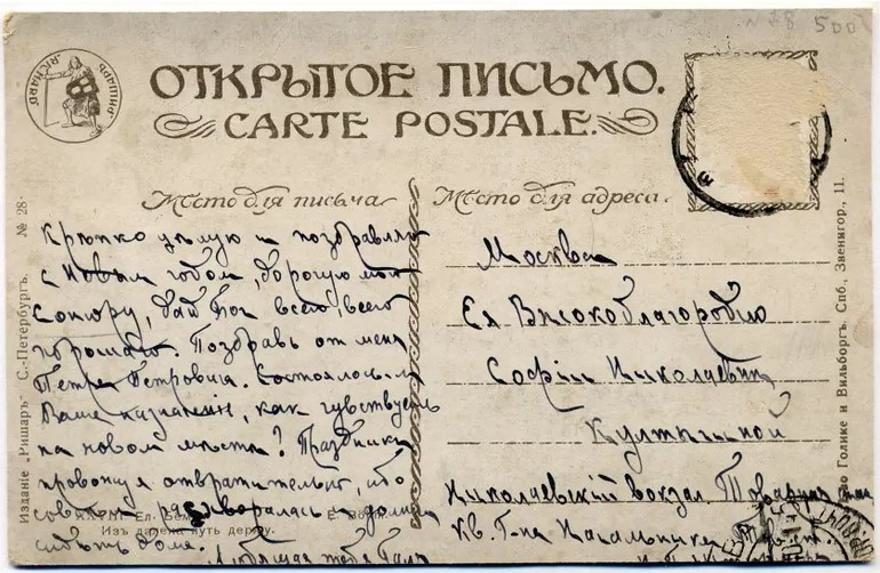 № 28 500
РИШАРЪ
"RICHARD"
ОТКРЫТОЕ ПИСЬМО.
CARTE POSTALE.
Мѣсто для письма
Мѣсто для адреса.
Крѣпко цѣлую и поздравляю
с Новым годом, дорогую мою
Сонюру, дай Бог всего, всего
хорошаго. Поздравь от меня
Петра Петровича. Состоялось ли
Ваше назначеніе, как чувствуешь
на новом мѣстѣ? Праздники
провожу я отвратительно, ибо
совсѣм и должна
сидѣть дома.
Любящая тебя
Москва
Ея Высокоблагородію
Софіи Николаевнѣ
Николаевскій вокзал Товарная
кв. Г-на Начальника
Изданіе „Ришаръ“ С.-Петербургъ. № 28
Ел. Бёмъ. E. Boehm.
Изъ далека путь держу.
Голике и Вильборгъ. Спб., Звенигор., 11.